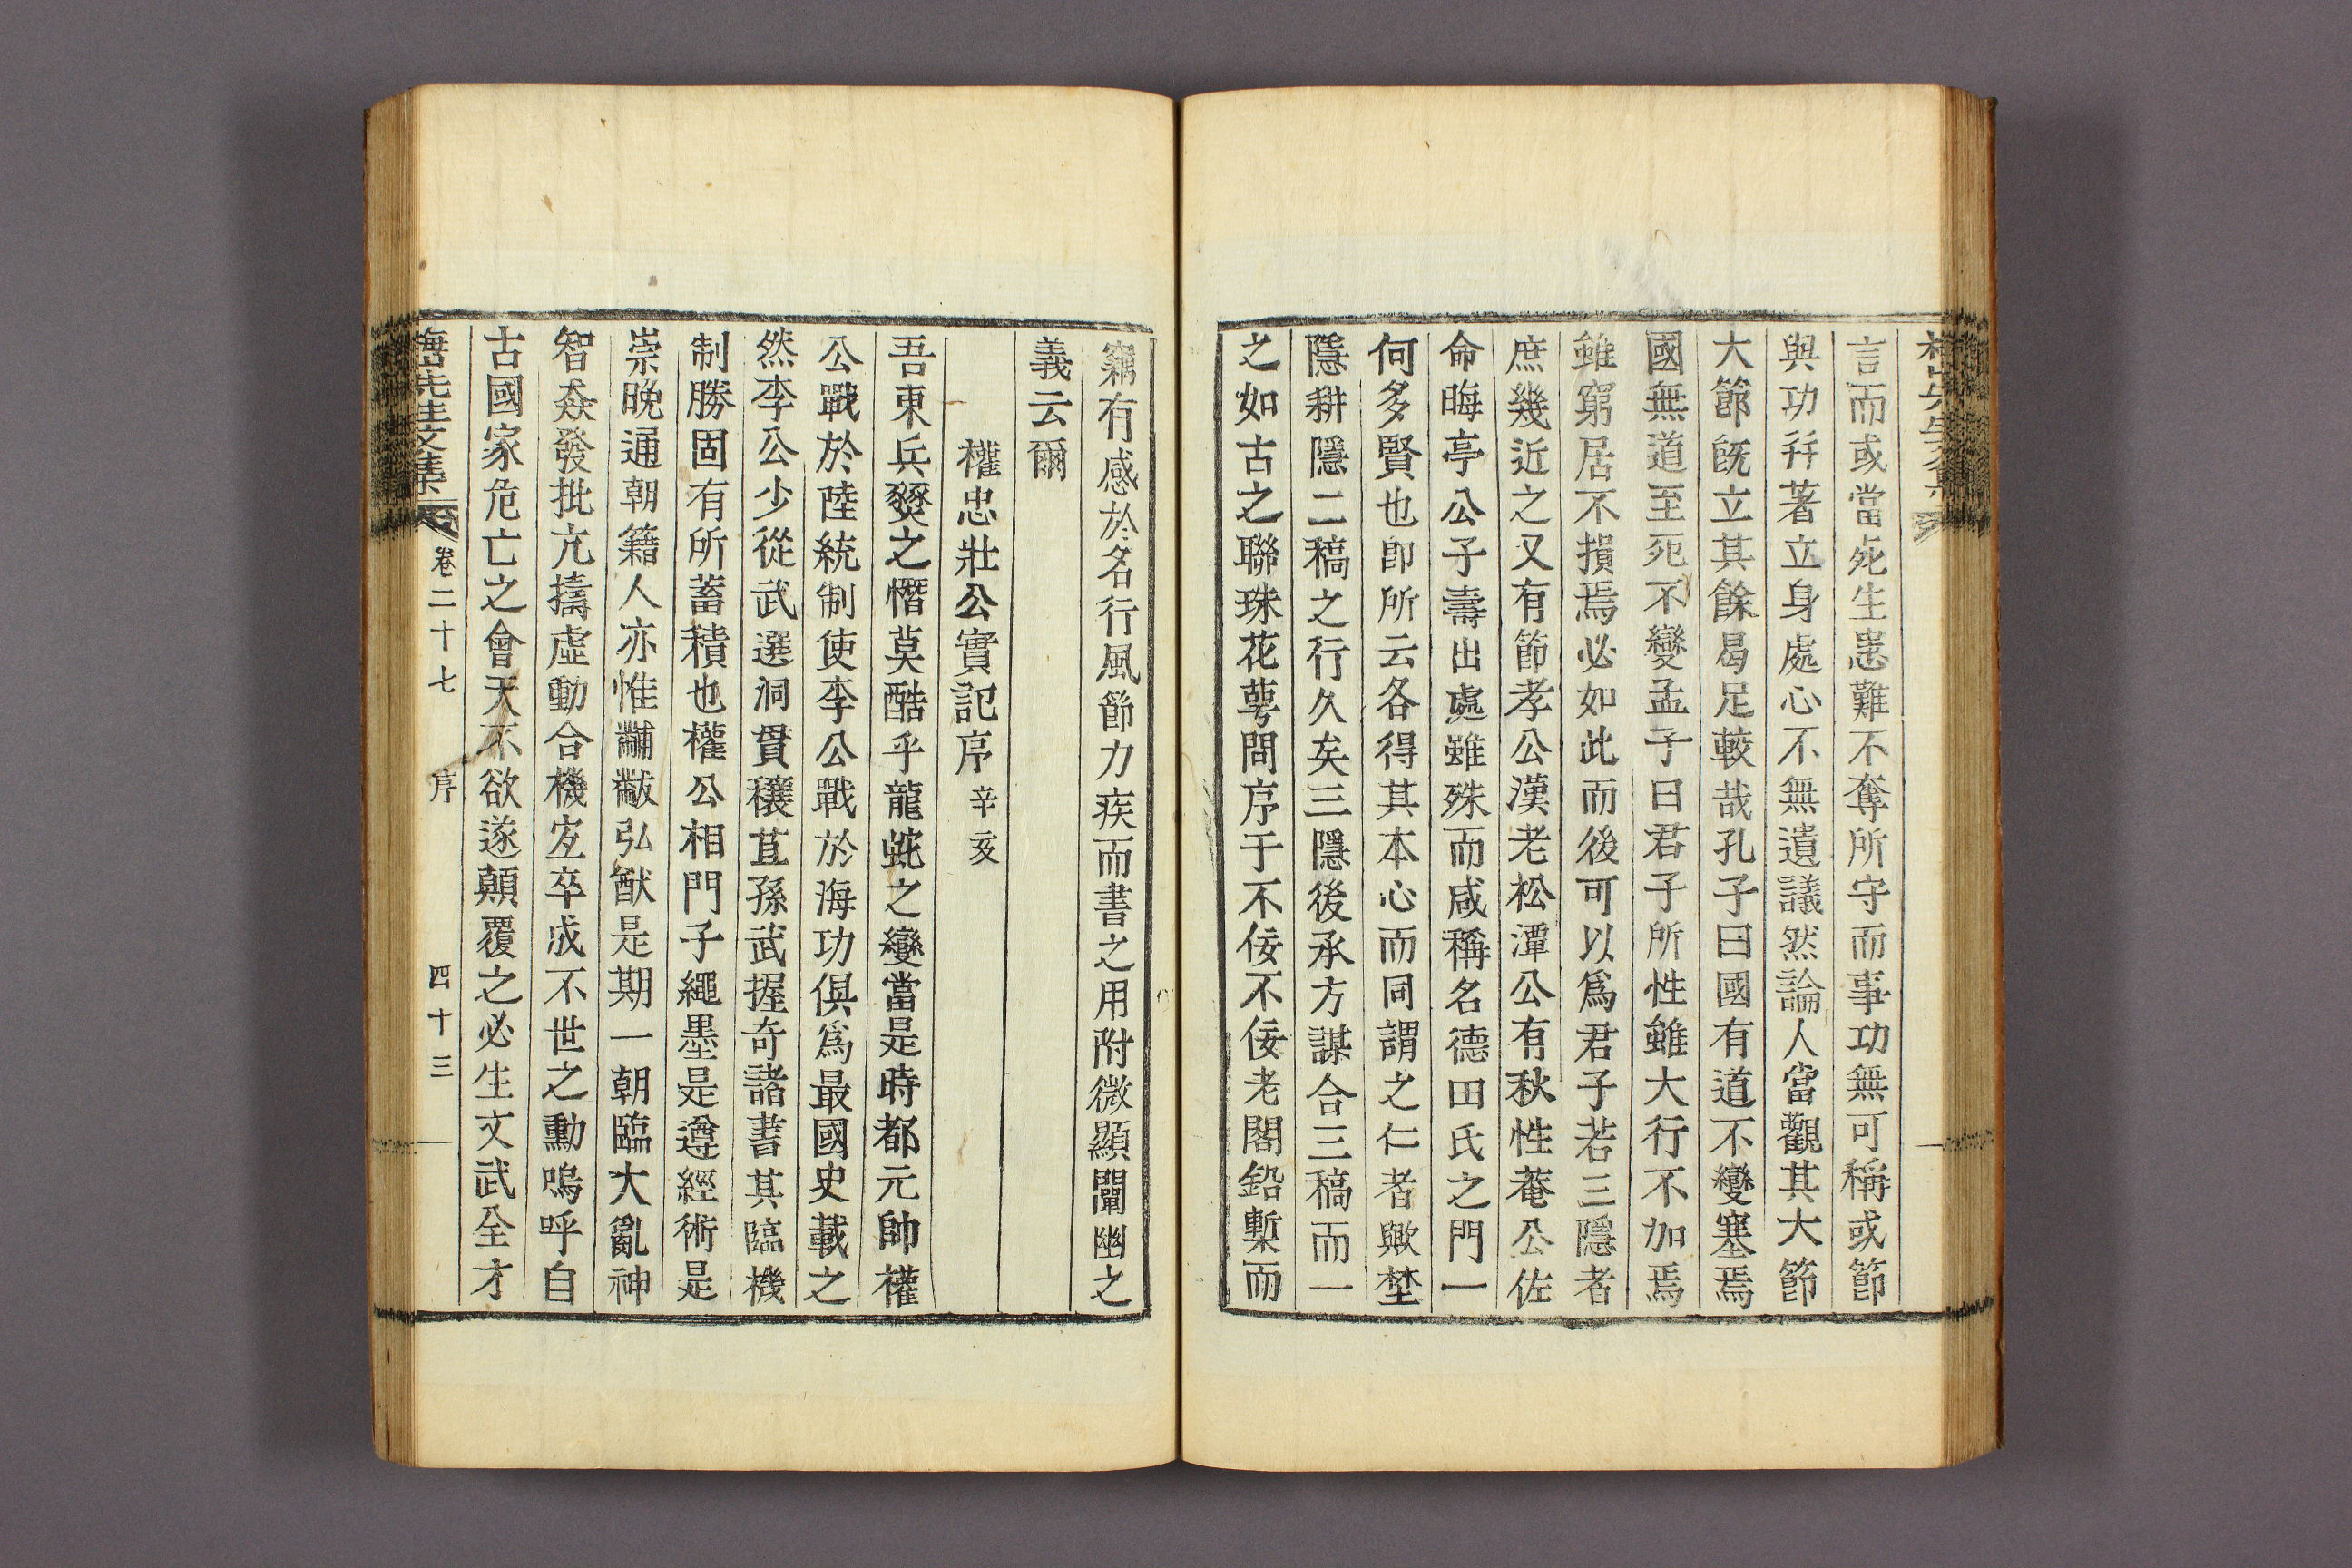 言而或當死生患難不奪所守而事功無可稱或節
與功幷著立身處心不無遺議然論人當觀其大節
大節旣立其餘曷足較哉孔子曰國有道不變塞焉
國無道至死不變孟子曰君子所性雖大行不加焉
雖窮居不損焉必如此而後可以爲君子若三隱者
庶幾近之又有節孝公漢老松潭公有秋性菴公佐
命晦亭公子壽出處雖殊而咸稱名德田氏之門一
何多賢也卽所云各得其本心而同謂之仁者歟埜
隱耕隱二稿之行久矣三隱後承方謀合三稿而一
之如古之聯珠花萼問序于不佞不佞老閣鉛槧而
竊有感於名行風節力疾而書之用附微顯闡幽之
義云爾
權忠壯公實記序 辛亥
吾東兵燹之憯莫酷乎龍蛇之變當是時都元帥權
公戰於陸統制使李公戰於海功俱爲最國史載之
然李公少從武選洞貫穰苴孫武握奇諸書其臨機
制勝固有所蓄積也權公相門子繩墨是遵經術是
崇晩通朝籍人亦惟黼黻弘猷是期一朝臨大亂神
智猋發批亢擣虛動合機宜卒成不世之勳嗚呼自
古國家危亡之會天不欲遂顚覆之必生文武全才
先生文集 卷二十七 序 四十三